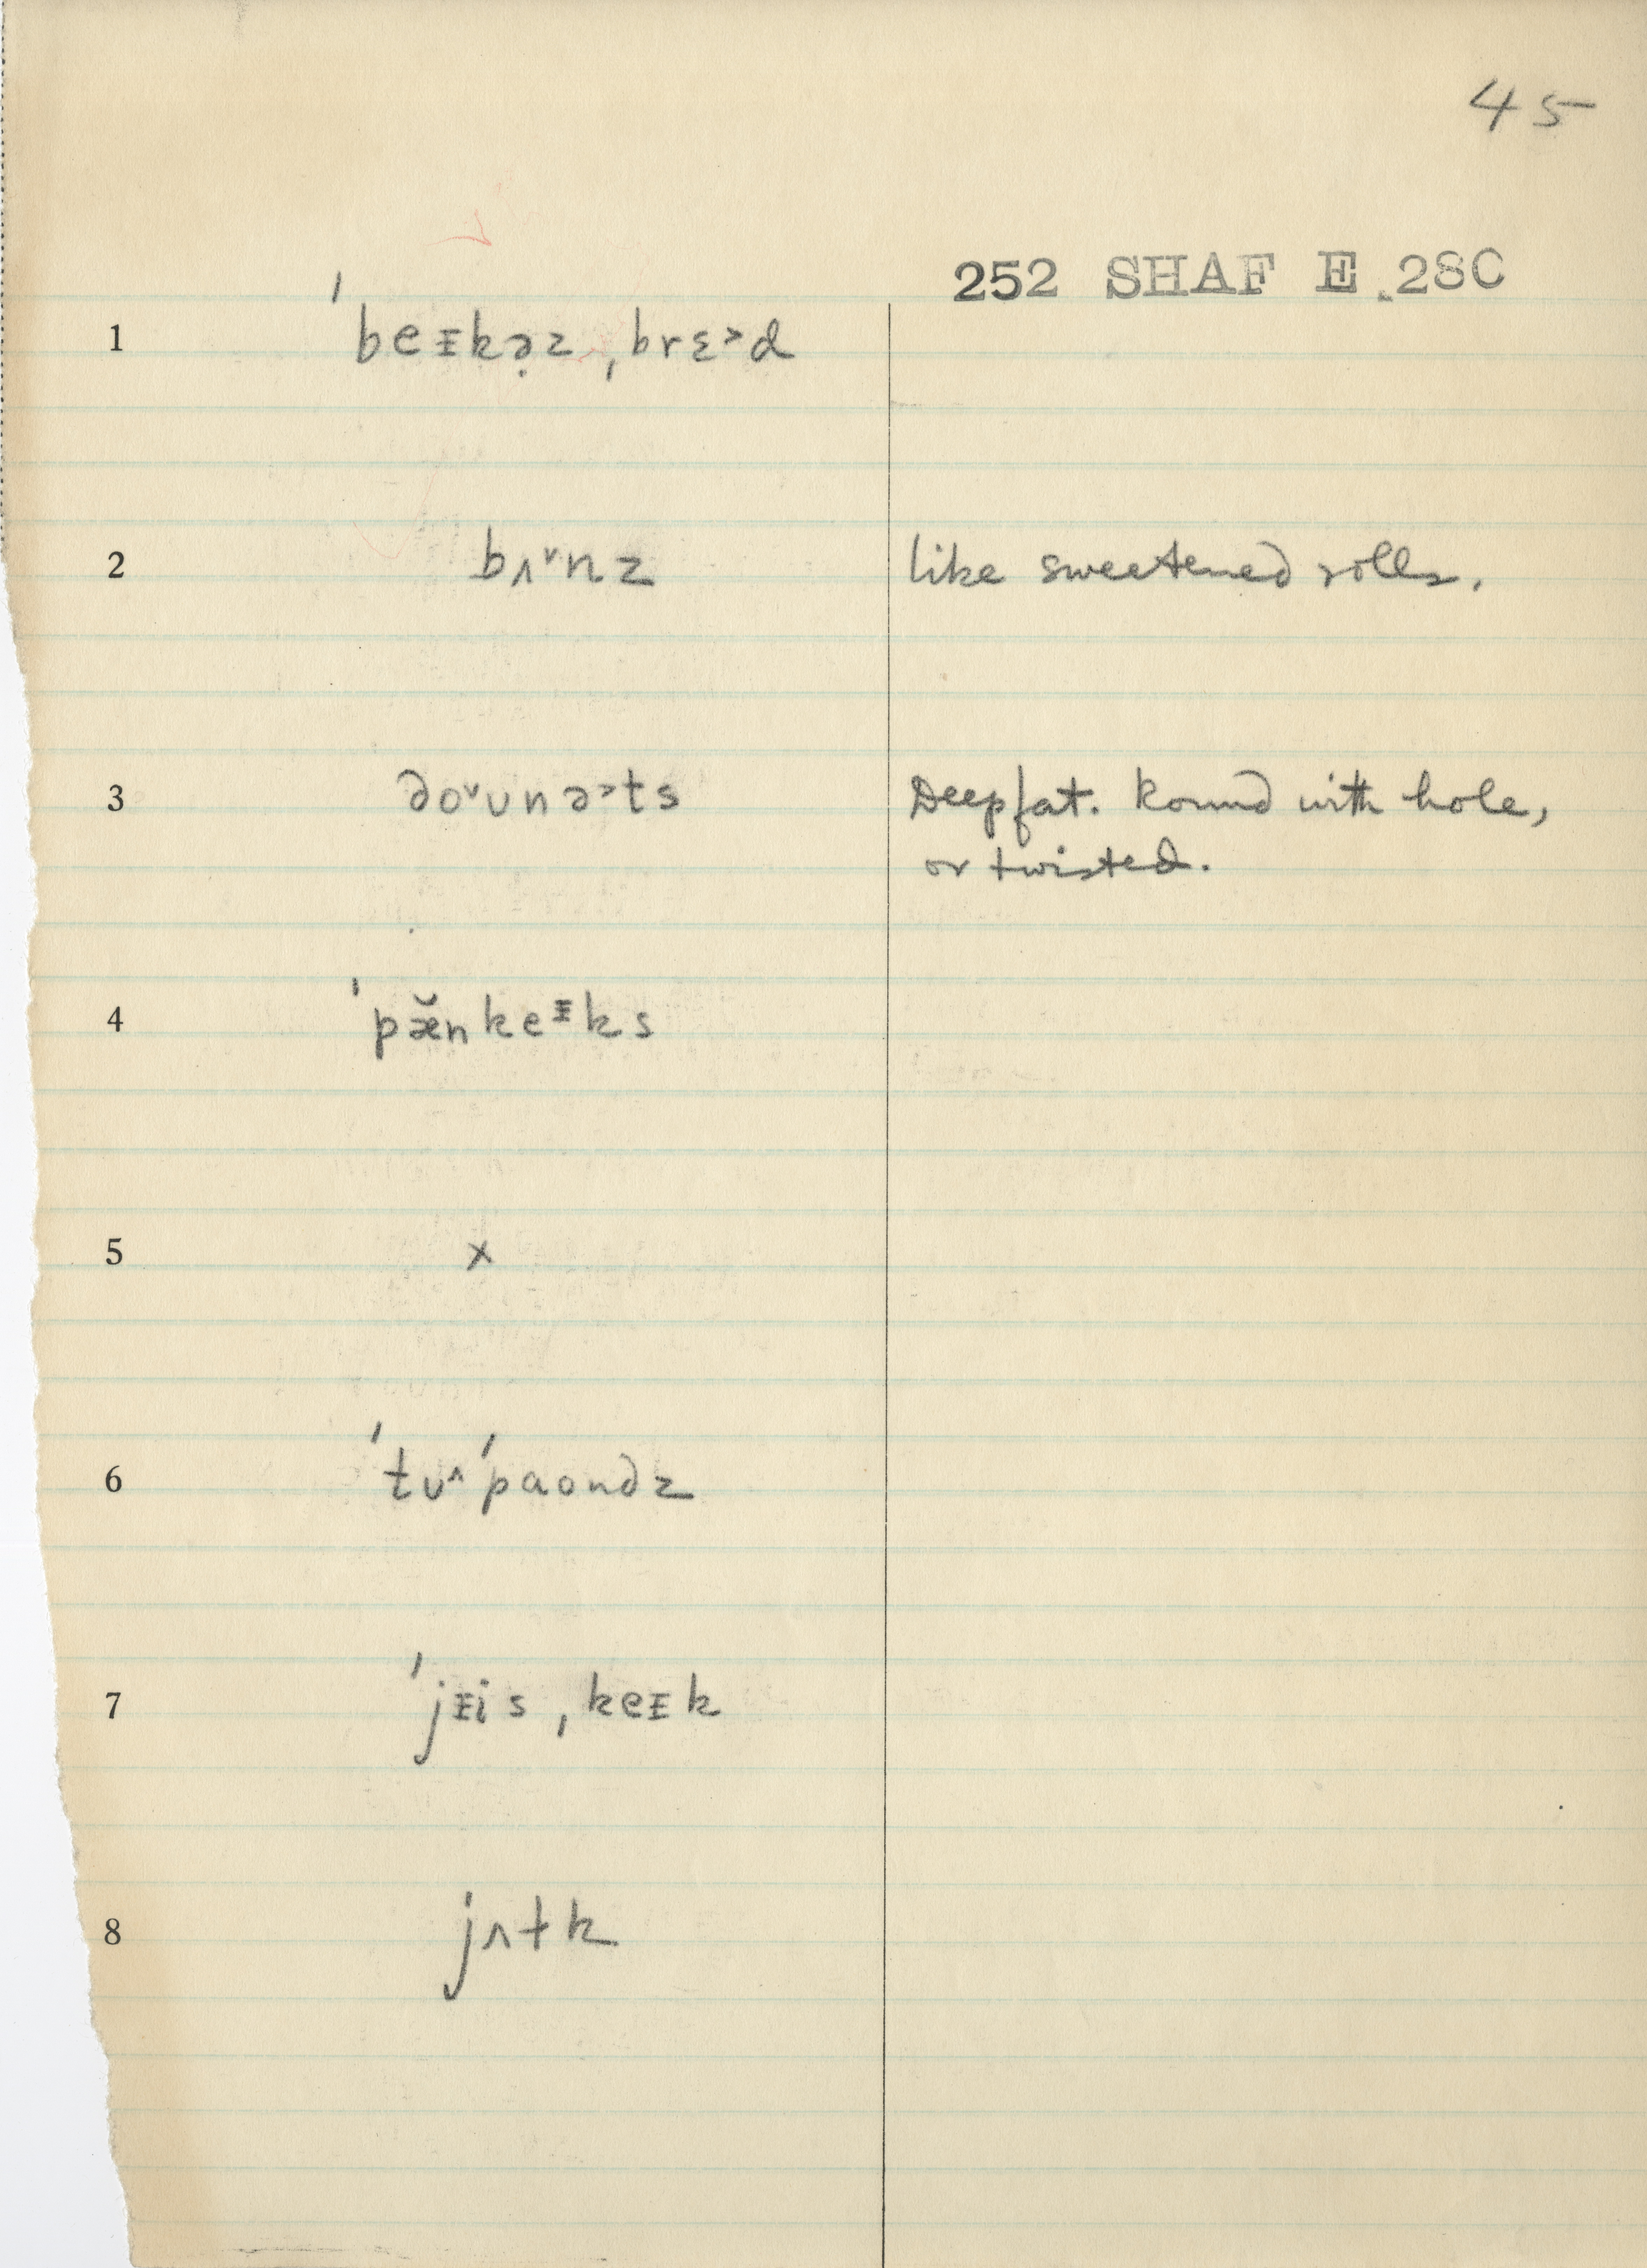 45
252 SHAF E.28C
1 ˈbeᵻkə̣z ˌbrɛ˃d
2 bʌ˅nz like sweetened rolls.
3 do˅ʊnə˃ts Deep fat. Round with hole,
or twisted.
4 ˈpæ̆nkeᵻks
5 x
6 ˈtʊ^ˈpaʊndz
7 ˈjᵻis ˌkeᵻk
8 jʌɫk